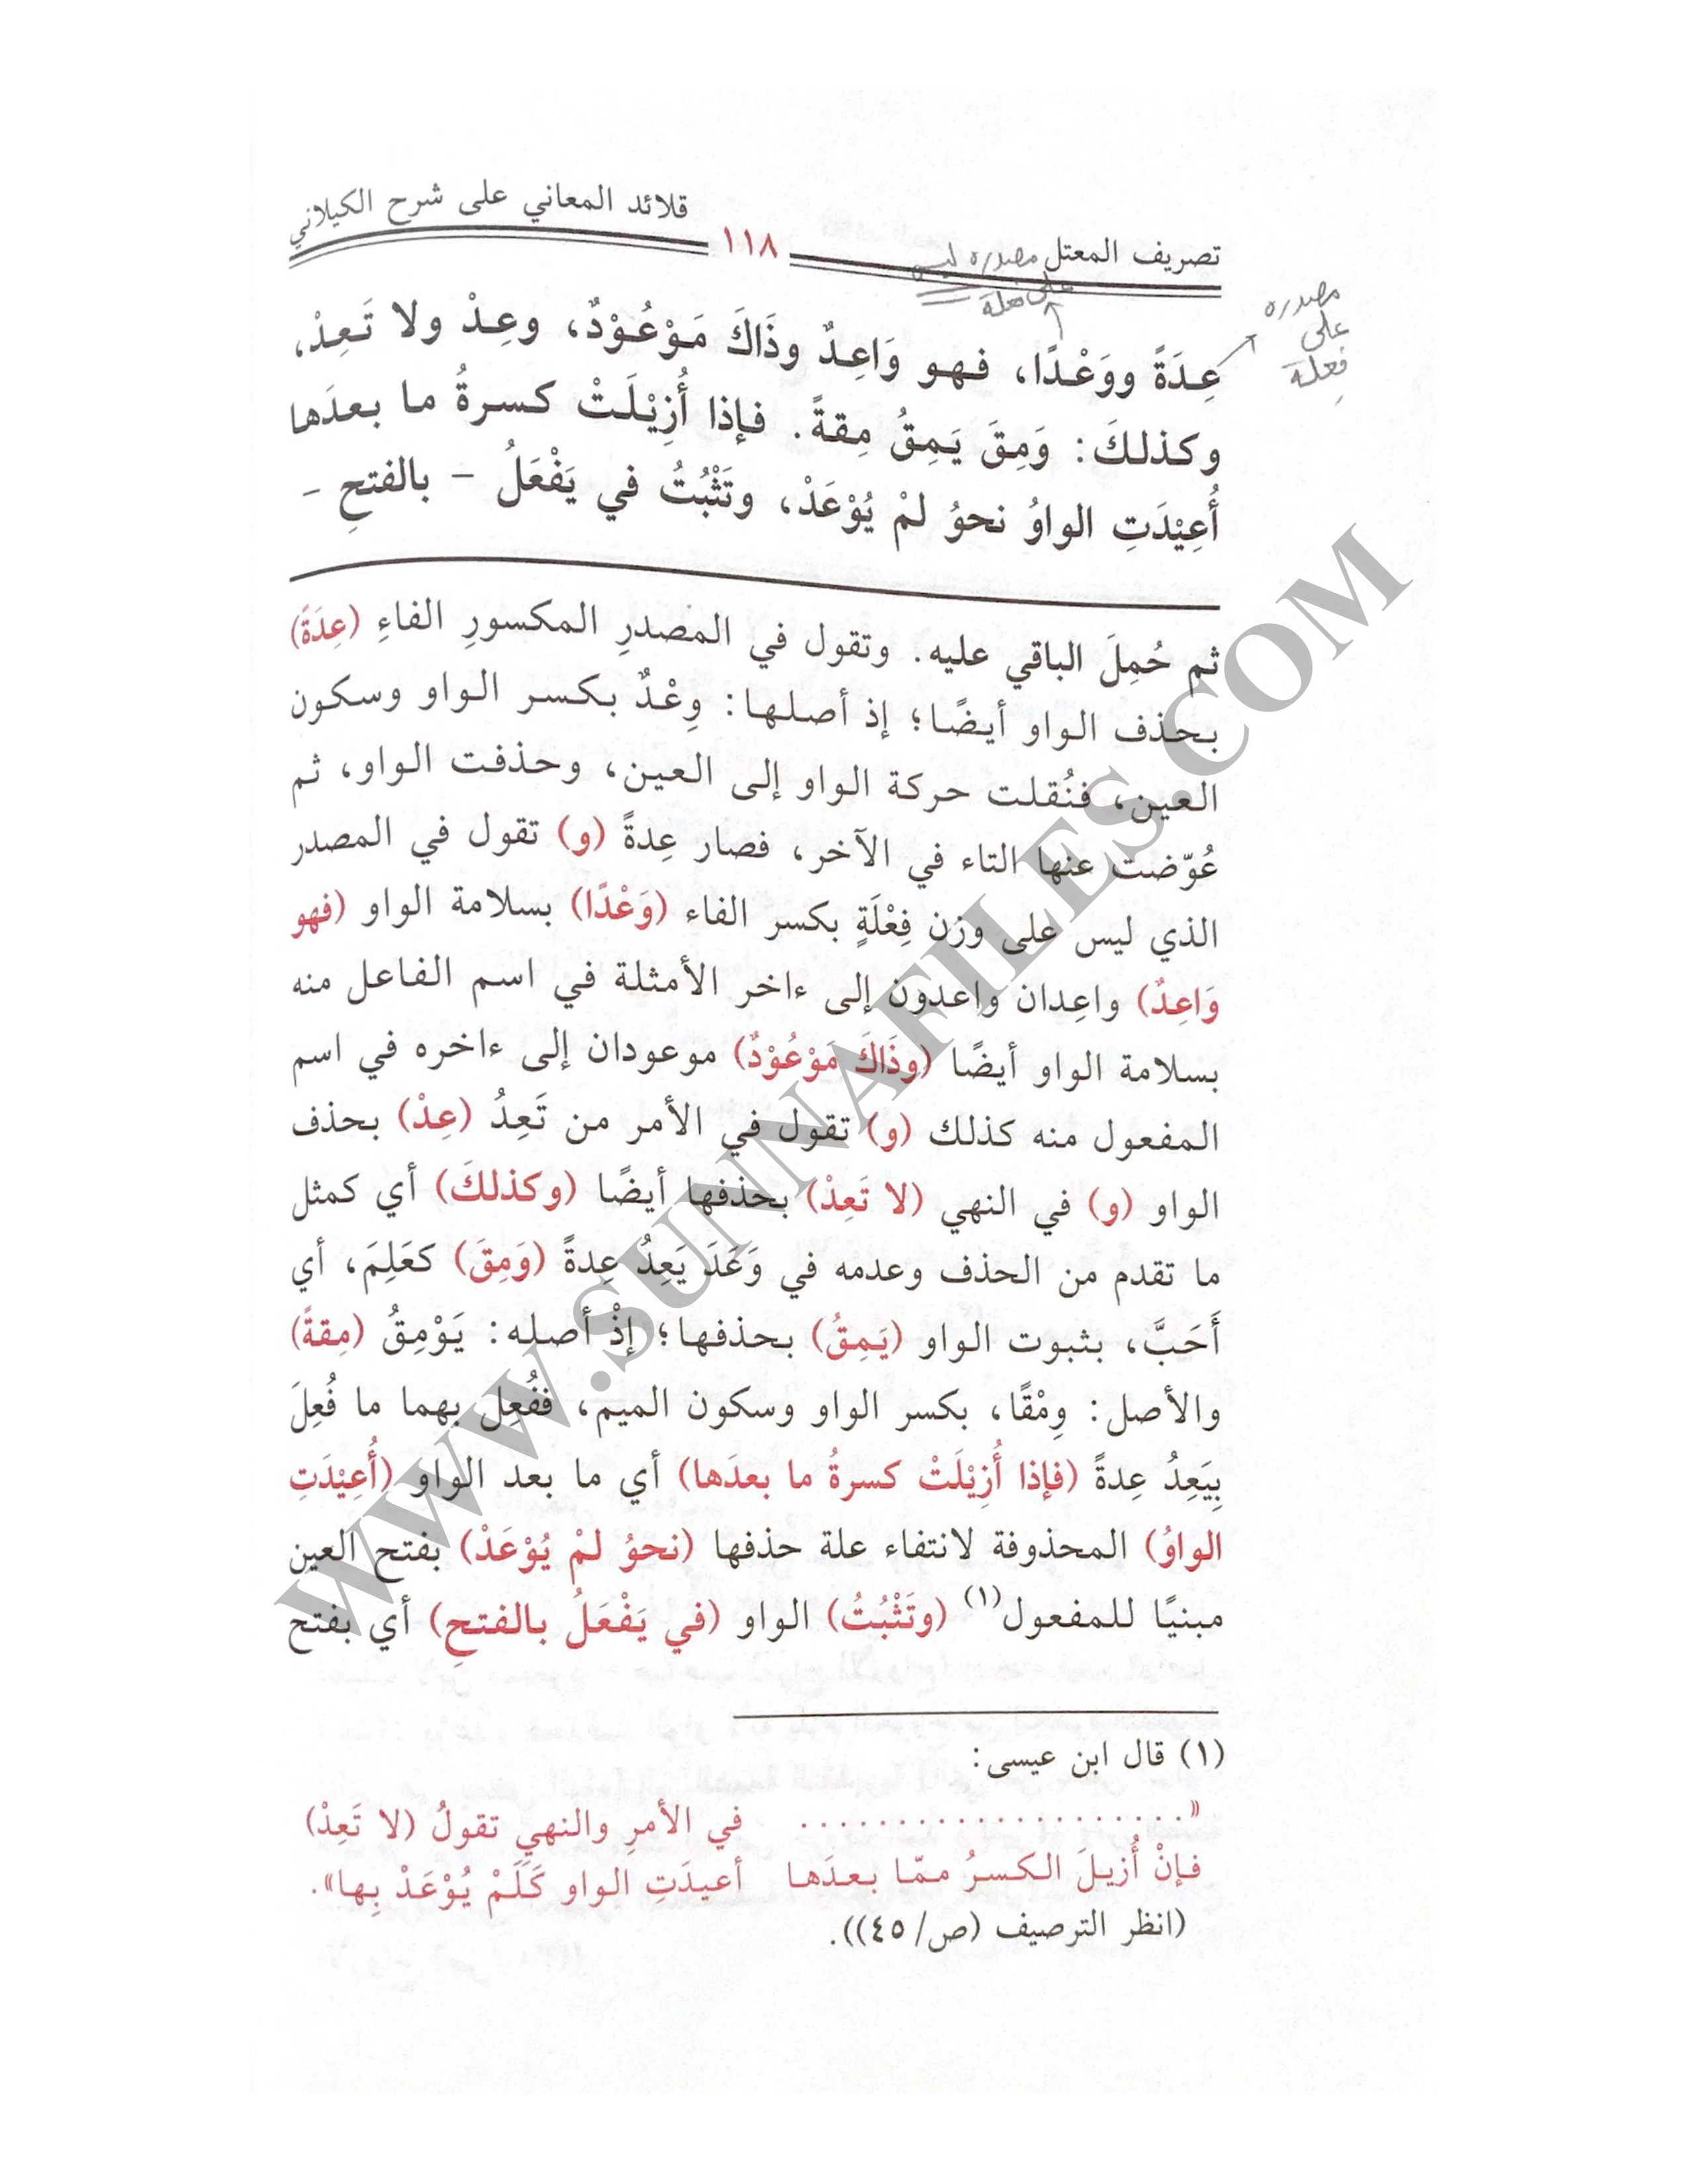 تصريف المعتل ١١٨ قلائد المعاني على شرح الكيلاني
مصدره ليس
على فعلة
مصدره
على
فِعلة
عِدَةً ووَعْدًا، فهو وَاعِدٌ وذَاكَ مَوْعُوْدٌ، وعِدْ ولا تَعِدْ،
وكذلكَ: وَمِقَ يَمِقُ مِقةً. فإذا أُزِيْلَتْ كسرةُ ما بعدَها
أُعِيْدَتِ الواوُ نحوُ لمْ يُوْعَدْ، وتَثْبُتُ في يَفْعَلُ - بالفتحِ -
ثم حُمِلَ الباقي عليه. وتقول في المصدرِ المكسورِ الفاءِ (عِدَةً)
بحذف الواو أيضًا؛ إذ أصلها: وِعْدٌ بكسر الواو وسكون
العين، فنُقلت حركة الواو إلى العين، وحذفت الواو، ثم
عُوّضت عنها التاء في الآخر، فصار عِدةً (و) تقول في المصدر
الذي ليس على وزن فِعْلَةٍ بكسر الفاء (وَعْدًا) بسلامة الواو (فهو
وَاعِدٌ) واعِدان واعدون إلى ءاخر الأمثلة في اسم الفاعل منه
بسلامة الواو أيضًا (وذَاكَ مَوْعُوْدٌ) موعودان إلى ءاخره في اسم
المفعول منه كذلك (و) تقول في الأمر من تَعِدُ (عِدْ) بحذف
الواو (و) في النهي (لا تَعِدْ) بحذفها أيضًا (وكذلكَ) أي كمثل
ما تقدم من الحذف وعدمه في وَعَدَ يَعِدُ عِدةً (وَمِقَ) كعَلِمَ، أي
أَحَبَّ، بثبوت الواو (يَمِقُ) بحذفها؛ إذْ أصله: يَوْمِقُ (مِقةً)
والأصل: وِمْقًا، بكسر الواو وسكون الميم، ففُعِل بهما ما فُعِلَ
بِيَعِدُ عِدةً (فإذا أُزِيْلَتْ كسرةُ ما بعدَها) أي ما بعد الواو (أُعِيْدَتِ
الواوُ) المحذوفة لانتفاء علة حذفها (نحوُ لمْ يُوْعَدْ) بفتح العين
مبنيًا للمفعول(١) (وتَثْبُتُ) الواو (في يَفْعَلُ بالفتحِ) أي بفتح
(١) قال ابن عيسى:
«.................... في الأمرِ والنهيِ تقولُ (لا تَعِدْ)
فإنْ أُزيلَ الكسرُ ممّا بعدَها أعيدَتِ الواو كَلَمْ يُوْعَدْ بِها».
(انظر الترصيف (ص/٤٥)).
WWW.SUNNAFILES.COM